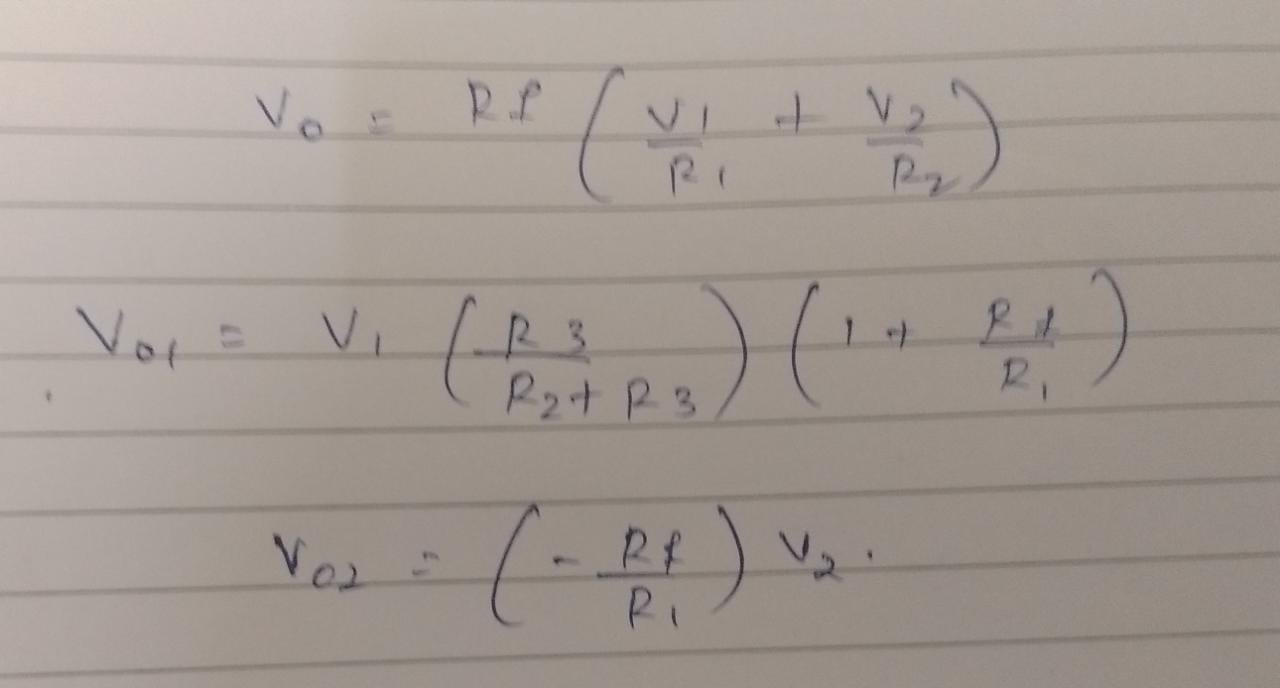 V₀ = Rf ( V₁/R₁ + V₂/R₂ )
V₀₁ = V₁ ( R₃/(R₂ + R₃) ) ( 1 + Rf/R₁ )
V₀₂ = ( - Rf/R₁ ) V₂.